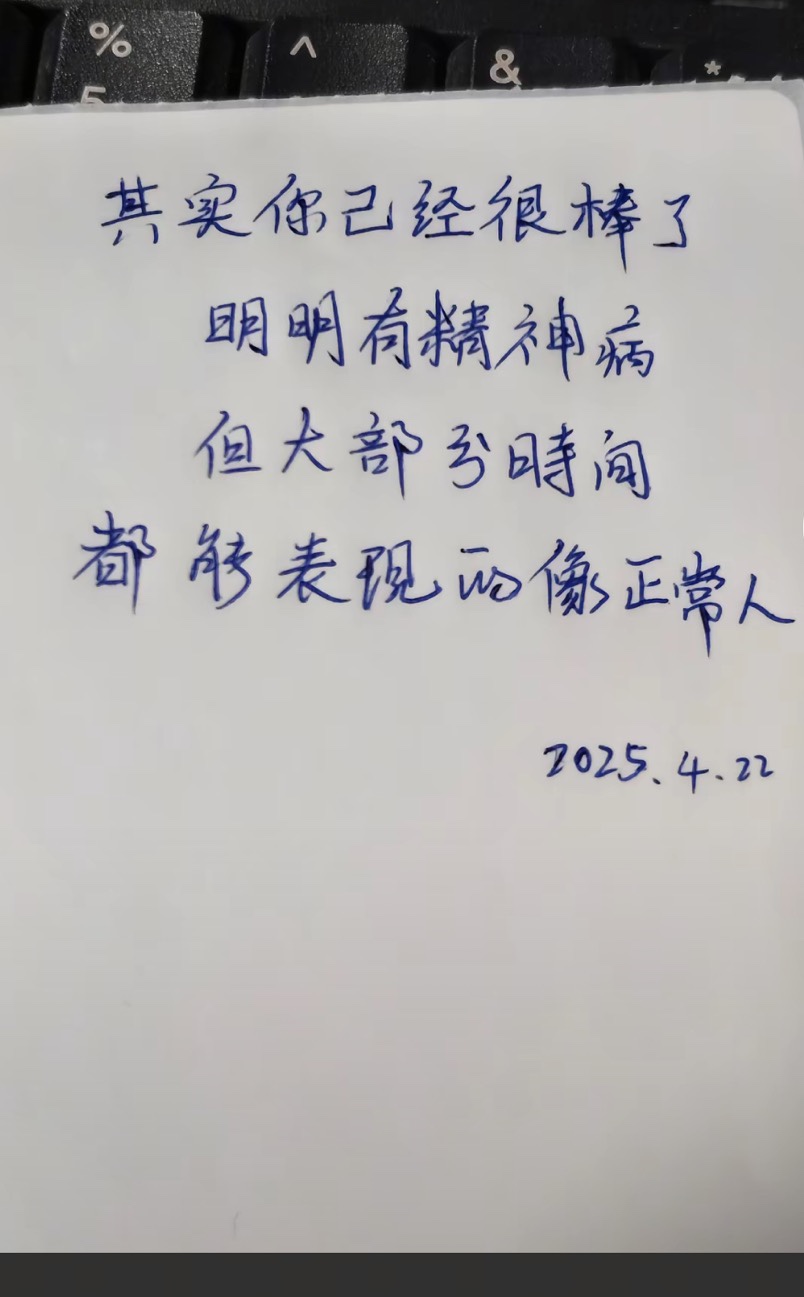 % ^ & *
5
其实你已经很棒了
明明有精神病
但大部分時间
都能表现的像正常人
2025.4.22